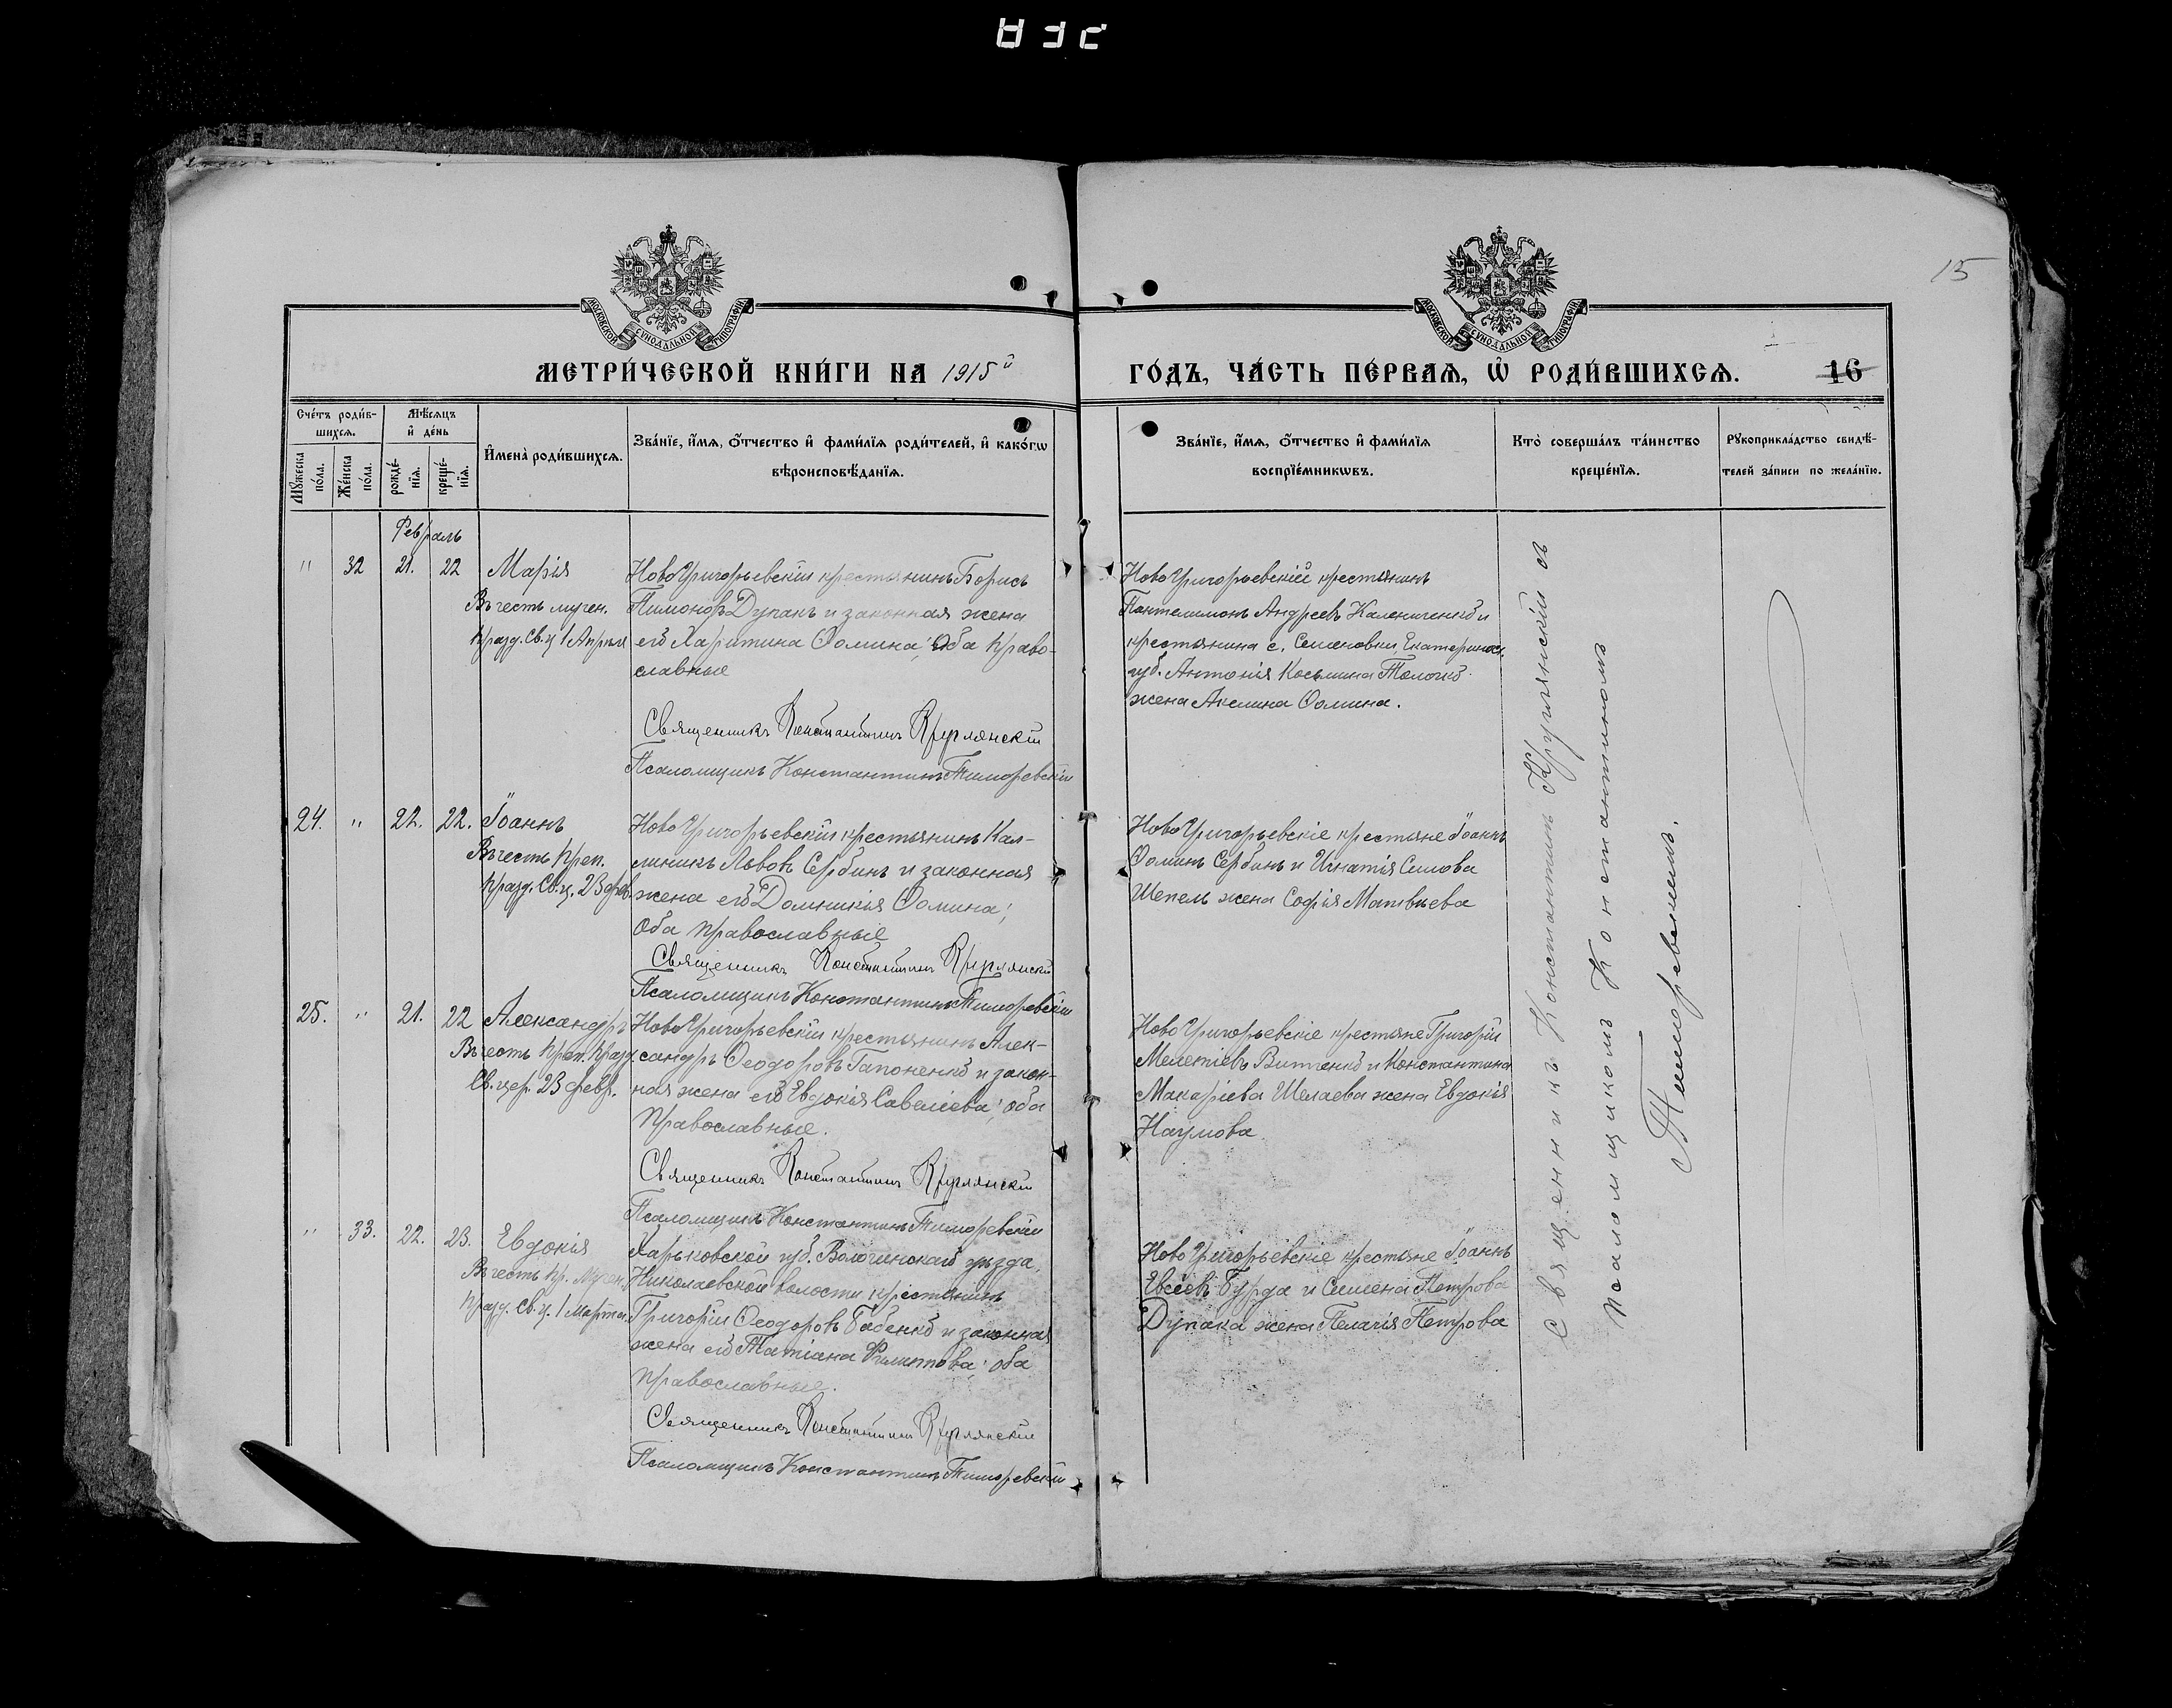 МЕТРИ́ЧЕСКОЙ КНИ́ГИ НА 1915й
ГО́ДЪ, ЧА́СТЬ ПЕ́РВАѦ, Ѡ РОДИ́ВШИХСѦ.
16
15
МОСКОВСКОЙ СѴНОДАЛЬНОЙ ТИПОГРАФІИ
МОСКОВСКОЙ СѴНОДАЛЬНОЙ ТИПОГРАФІИ
Сче́тъ роди́в-
шихсѧ.
Мѣ́сѧцъ
и҆ де́нь
Мꙋ́жеска
по́ла.
Же́нска
по́ла.
рожде́-
нїѧ.
креще́-
нїѧ.
И҆мена̀ роди́вшихсѧ.
Зва́нїе, и҆́мѧ, ѻ҆́тчество и҆ фами́лїѧ роди́телей, и҆ како́гѡ
вѣроисповѣ́данїѧ.
Зва́нїе, и҆́мѧ, ѻ҆́тчество и҆ фами́лїѧ
воспрїе́мникѡвъ.
Кто̀ соверша́лъ та́инство
креще́нїѧ.
Рꙋкоприкла́дство свидѣ́-
телей за́писи по жела́нїю.
Февраль
" 32 21. 22 Марія
Въ честь мучен.
празд. Св. ц. 1 Апреля
НовоГригорьевскій крестьянинъ Борисъ
Пимоновъ Дупакъ и законная жена
его Харитина Ѳомина; Оба право-
славные
Священникъ Константинъ Круглянскій
Псаломщикъ Константинъ Тиморевскій
НовоГригорьевскій крестьянинъ
Пантелимонъ Андреевъ Калениченко и
крестьянина с. Семеновки, Екатеринос.
губ. Антонія Косьмина Толочко
жена Акилина Ѳомина.
24. " 22. 22. Іоаннъ
Въ честь Преп.
празд. Св. ц. 23 фев.
НовоГригорьевскій крестьянинъ Кал-
линикъ Львовъ Сербинъ и законная
жена его Домникія Ѳомина;
Оба православные
Священникъ Константинъ Круглянскій
Псаломщикъ Константинъ Тиморевскій
НовоГригорьевскіе крестьяне Іоаннъ
Ѳоминъ Сербинъ и Игнатія Силова
Шепель жена Софія Матвѣева
25. " 21. 22 Александръ
Въ честь Преп. празд.
Св. цер. 23 февр.
НовоГригорьевскій крестьянинъ Алек-
сандръ Ѳеодоровъ Гапоненко и закон-
ная жена его Евдокія Савеліева; оба
православные.
Священникъ Константинъ Круглянскій
Псаломщикъ Константинъ Тиморевскій
НовоГригорьевскіе крестьяне Григорій
Мелетіевъ Витченко и Константина
Макаріева Шелаева жена Евдокія
Наумова
" 33. 22. 23. Евдокія
Въ честь пр. Мучен.
празд. Св. ц. 1 Марта.
Харьковской губ. Волочинскаго уѣзда,
Николаевской волости крестьянинъ
Григорій Ѳеодоровъ Бабенко и законная
жена его Татіана Филиппова; оба
православные.
Священникъ Константинъ Круглянскій
Псаломщикъ Константинъ Тиморевскій
НовоГригорьевскіе крестьяне Іоаннъ
Евсеевъ Бурда и Симеона Петрова
Дупака жена Пелагія Петрова
Священникъ Константинъ Круглянскій съ
псаломщикомъ Константиномъ
Тиморевскимъ.